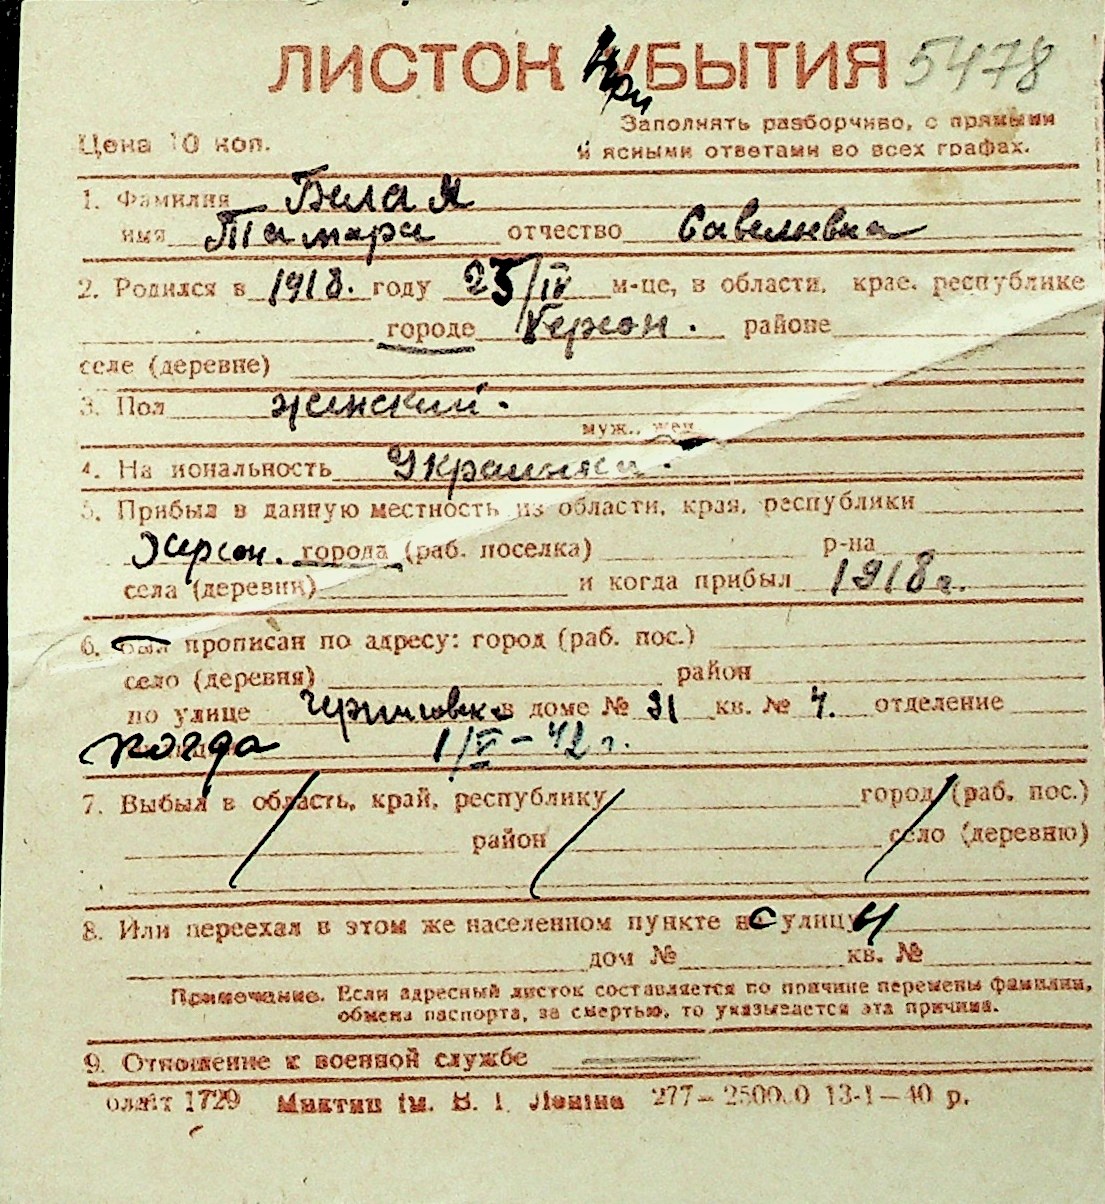 ЛИСТОК При УБЫТИЯ 5478
Заполнять разборчиво, с прямыми
Цена 10 коп. и ясными ответами во всех графах.
1. Фамилия Белая
имя Тамара отчество Савельевна
2. Родился в 1918. году 23/IV м-це, в области, крае, республике
городе Херсон. районе
селе (деревне)
3. Пол женский.
муж., жен.
4. На иональность Украинка.
5. Прибыл в данную местность из области, края, республики
Херсон. города (раб. поселка) р-на
села (деревни) и когда прибыл 1918 г.
6. был прописан по адресу: город (раб. пос.)
село (деревня) район
по улице в доме № 31 кв. № 4. отделение
когда 1/V-42 г.
7. Выбыл в область, край, республику город (раб. пос.)
район село (деревню)
8. Или переехал в этом же населенном пункте с улицы
дом № кв. №
Примечание. Если адресный листок составляется по причине перемены фамилии,
обмена паспорта, за смертью, то указывается эта причина.
9. Отношение к военной службе
1729 ім. В. І. Леніна 277— 13-1—40 р.